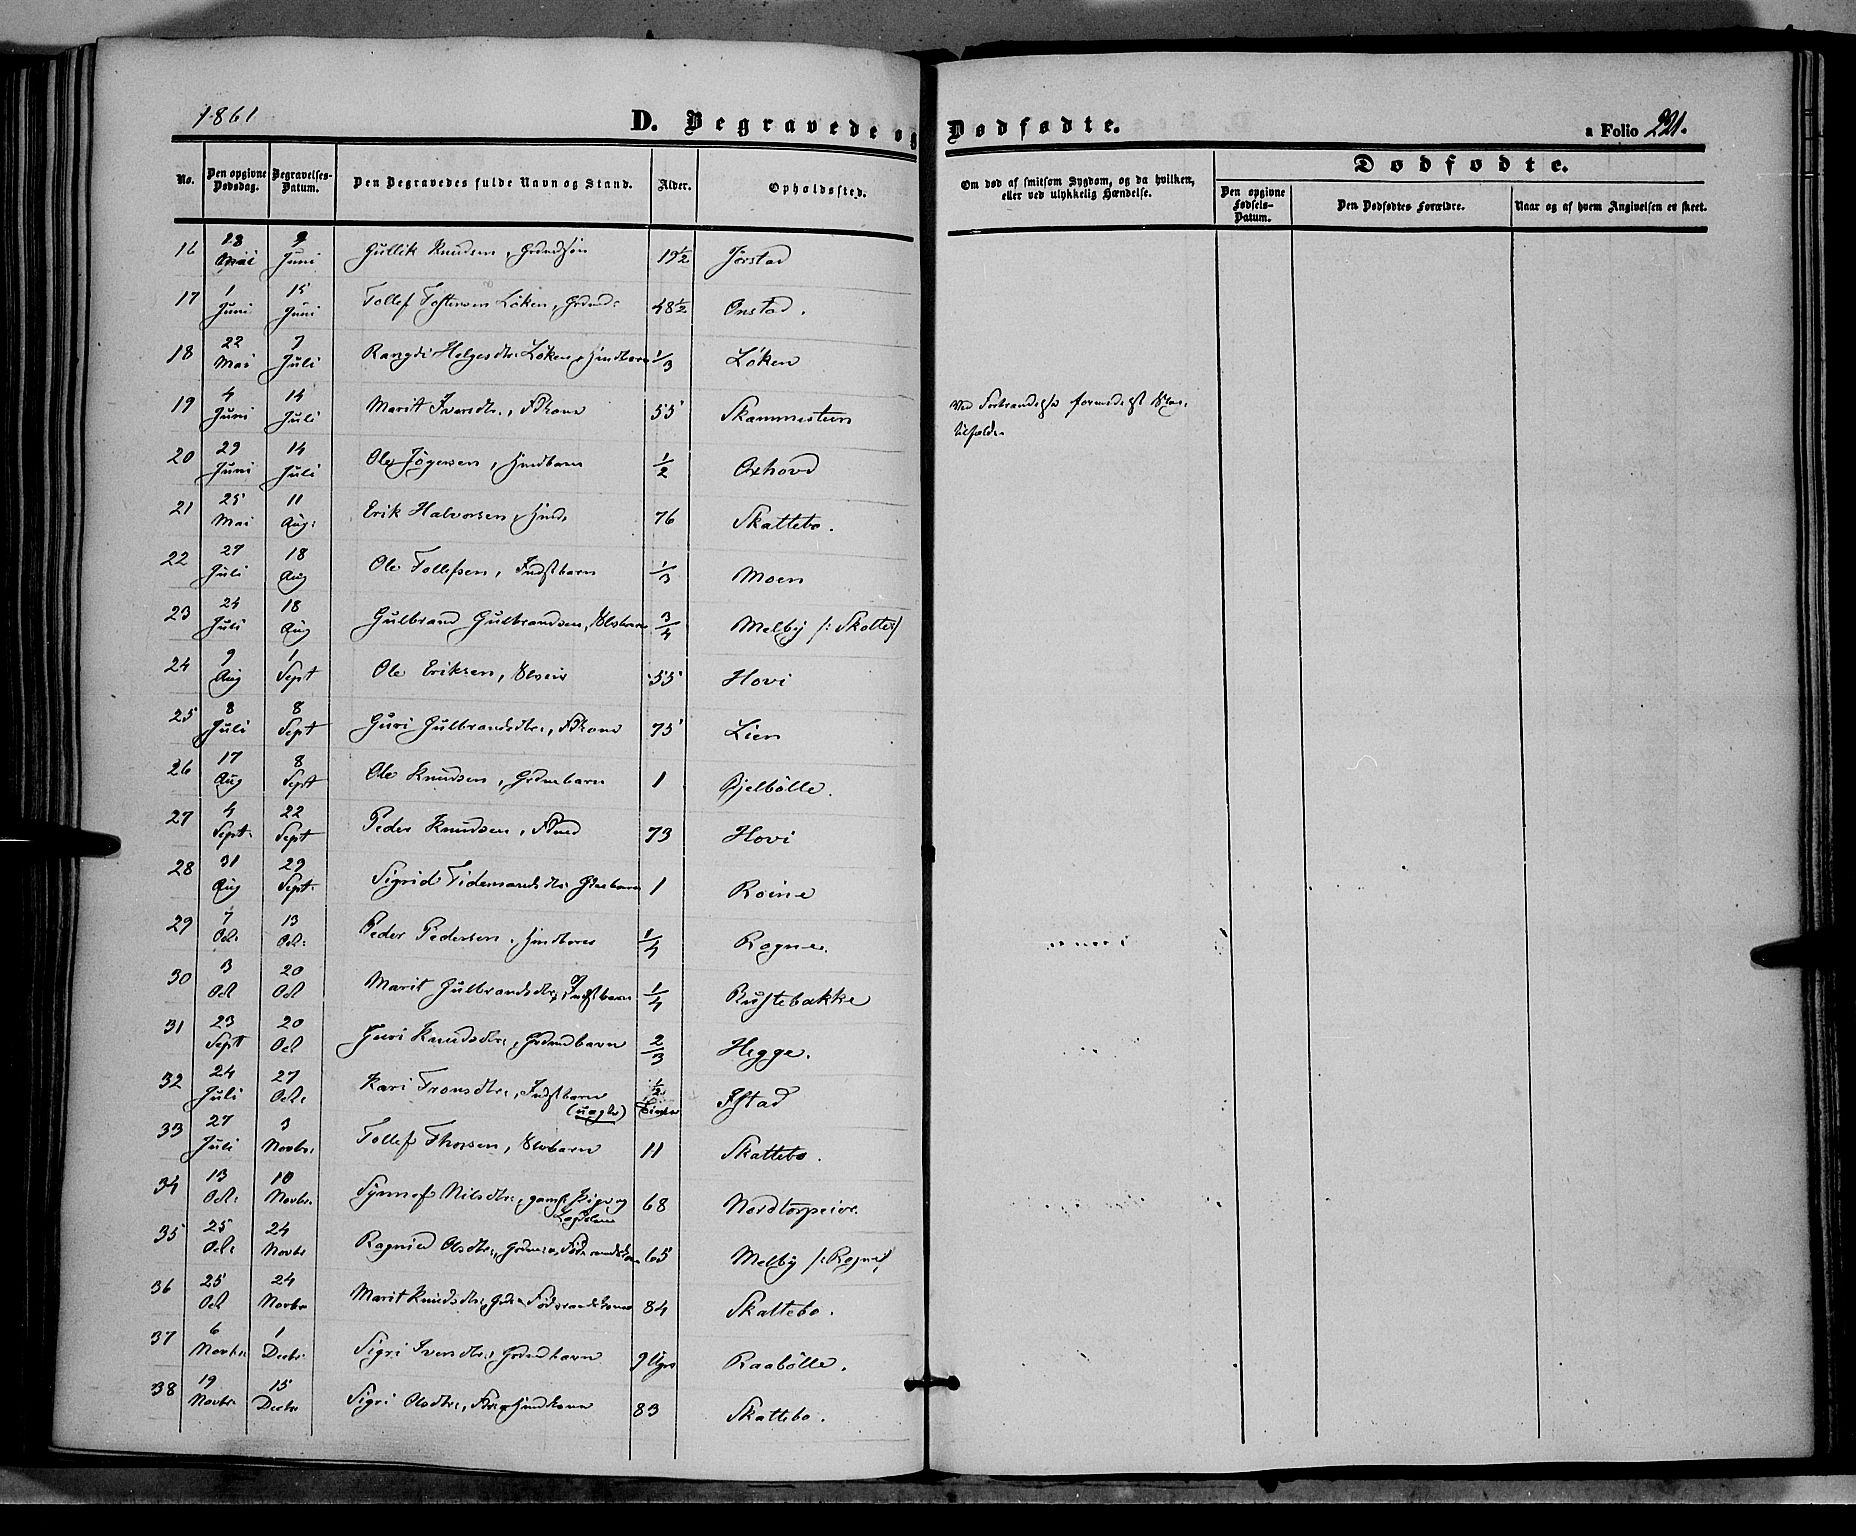 1861
D. Begravede og Dødfødte.
a Folio 221.
No.
Den opgivne Dødsdag.
Begravelses-Datum.
Den Begravedes fulde Navn og Stand.
Alder.
Opholdssted.
Om død af smitsom Sygdom, og da hvilken, eller ved ulykkelig Hændelse.
Dødfødte.
Den opgivne Fødsels-Datum.
Den Dødfødtes Forældre.
Naar og af hvem Angivelsen er skeet.
16 18 Mai 9 Juni Gullik Knudsen, Grdmdsøn 19½ Jorstad
17 1 Juni 15 Juni Tollef Tostensen Løken, Grdmd: 48½ Onstad.
18 22 Mai 7 Juli Rangdi Helgesdtr: Løken, 1/3 Løken
19 4 Juni 14 Juli Marit Iversdtr:, FdKone 55 Skammesteen
20 29 Juni 14 Juli Ole 1/2 Oxhovd
21 25 Mai 11 Aug: Erik Halvorsen, 76 Skattebo.
22 27 Juli 18 Aug Ole Tollefsen, Indstbarn 1/3 Moen
23 24 Juli 18 Aug Gulbrand Gulbrandsen, 3/4 Melby /: Skatteb)
24 9 Aug 1 Sept Ole Eriksen, 55 Hovi
25 8 Juli 8 Sept Guri Gulbrandsdtr:, FdKone 75 Lien
26 17 Aug 8 Sept Ole Knudsen, Grdmbarn 1 Bjelbølle.
27 4 Sept: 22 Sept Peder Knudsen, Fdmd 73 Hovi
28 31 Aug 29 Sept: Sigrid Tidemandsdtr: 1 Roine
29 7 Oct: 13 Oct: Peder Pedersen, 1/4 Rogne.
30 3 Oct 20 Oct Marit Gulbrandsdtr:, Indstbarn 1/4 Rustebakke
31 23 Sept 20 Oct Guri Knudsdtr:, Grdmdbarn 2/3 Hegge.
32 24 Juli 27 Oct: Kari Tronsdtr:, Indstbarn (uægte) ½ Time Istad
33 27 Juli 3 Novbr: Tollef Thorsen, 11 Skattebo.
34 13 Oct: 10 Novbr: Synnef Nilsdtr:, gaml: Pige og Lægdslem 68 Nordtorpeier
35 25 Oct: 24 Novbr Ragnild Olsdtr:, 65 Melby /: Rogne)
36 25 Oct 24 Novbr Marit Knudsdtr:, 84 Skattebo.
37 6 Novbr: 1 Decbr Sigri Iversdtr:, Grdmdbarn 9 Uger Raabølle.
38 19 Novbr: 15 Decbr Sigri Olsdtr:, 83 Skattebo.